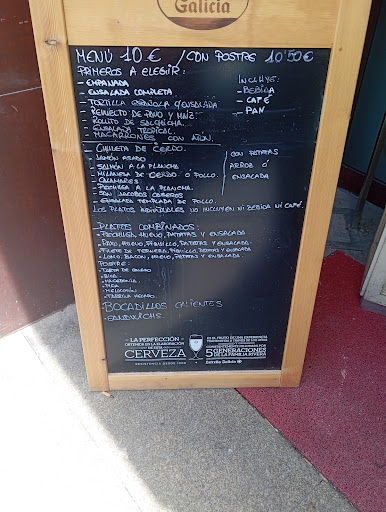 Galicia
MENÚ 10 € / CON POSTRE 10'50 €
PRIMEROS A ELEGIR:
- EMPANADA
- ENSALADA COMPLETA
- TORTILLA ESPAÑOLA Y ENSALADA
- REVUELTO DE PAVO Y MAIZ.
- ROLLITO DE SALCHICHA.
- ENSALADA TROPICAL.
- MACARRONES CON ATÚN.
INCLUYE:
- BEBIDA
- CAFÉ
- PAN
- CHULETA DE CERDO.
- JAMÓN ASADO
- SALMÓN A LA PLANCHA
- MILANESA DE CERDO Ó POLLO.
- CALAMARES
- PECHUGA A LA PLANCHA.
- SAN JACOBOS CASEROS
- ENSALADA TEMPLADA DE POLLO.
CON PATATAS
ARROZ Ó
ENSALADA
LOS PLATOS INDIVIDUALES NO INCLUYEN NI BEBIDA NI CAFÉ.
PLATOS COMBINADOS:
- PECHUGA, HUEVO, PATATAS Y ENSALADA
- HUEVO, PIMILLO, PATATAS Y ENSALADA
- FILETE DE TERNERA, PATATAS Y ENSALADA
- LOMO, BACON, HUEVO, PATATAS Y ENSALADA
POSTRE:
- TARTA DE QUESO
- MACEDONIA
- PIÑA
- MELOCOTÓN
- TARRINA HELADO.
BOCADILLOS CALIENTES
- SANDWICHS.
LA PERFECCIÓN
OBTENIDA EN LA ELABORACIÓN
DE ESTA
CERVEZA
RESISTENCIA DESDE 1906
ES EL FRUTO DE LA EXPERIENCIA
5 GENERACIONES
DE LA FAMILIA RIVERA
Estrella Galicia